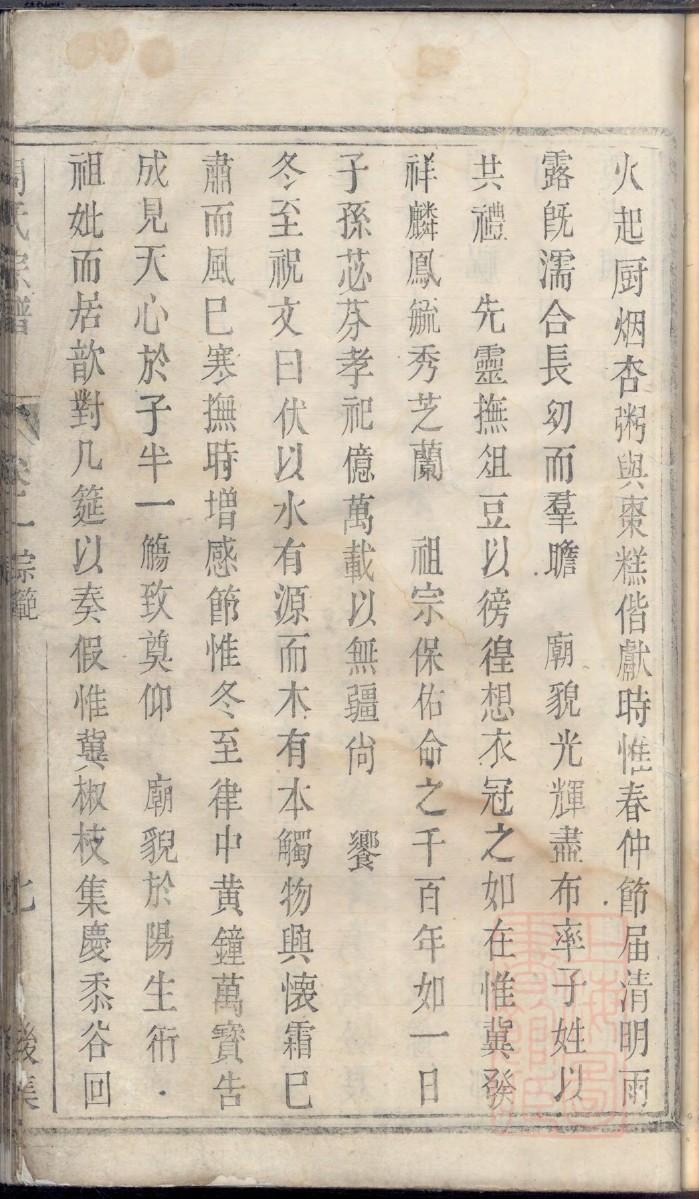 火起厨烟杏粥與棗糕偕獻時惟春仲節届清明雨
露旣濡合長幼而羣瞻 廟貌光輝盡布率子姓以
共禮 先靈撫俎豆以徬徨想衣冠之如在惟冀發
祥麟鳳毓秀芝蘭 祖宗保佑命之千百年如一日
子孫苾芬孝祀億萬載以無疆尙 饗
冬至祝文曰伏以水有源而木有本觸物興懷霜巳
肅而風巳寒撫時增感節惟冬至律中黄鐘萬寳告
成見天心於子半一觴致奠仰 廟貌於陽生術
祖妣而居歆對几筵以奏假惟冀椒枝集慶黍谷回
周氏宗譜 卷一宗範